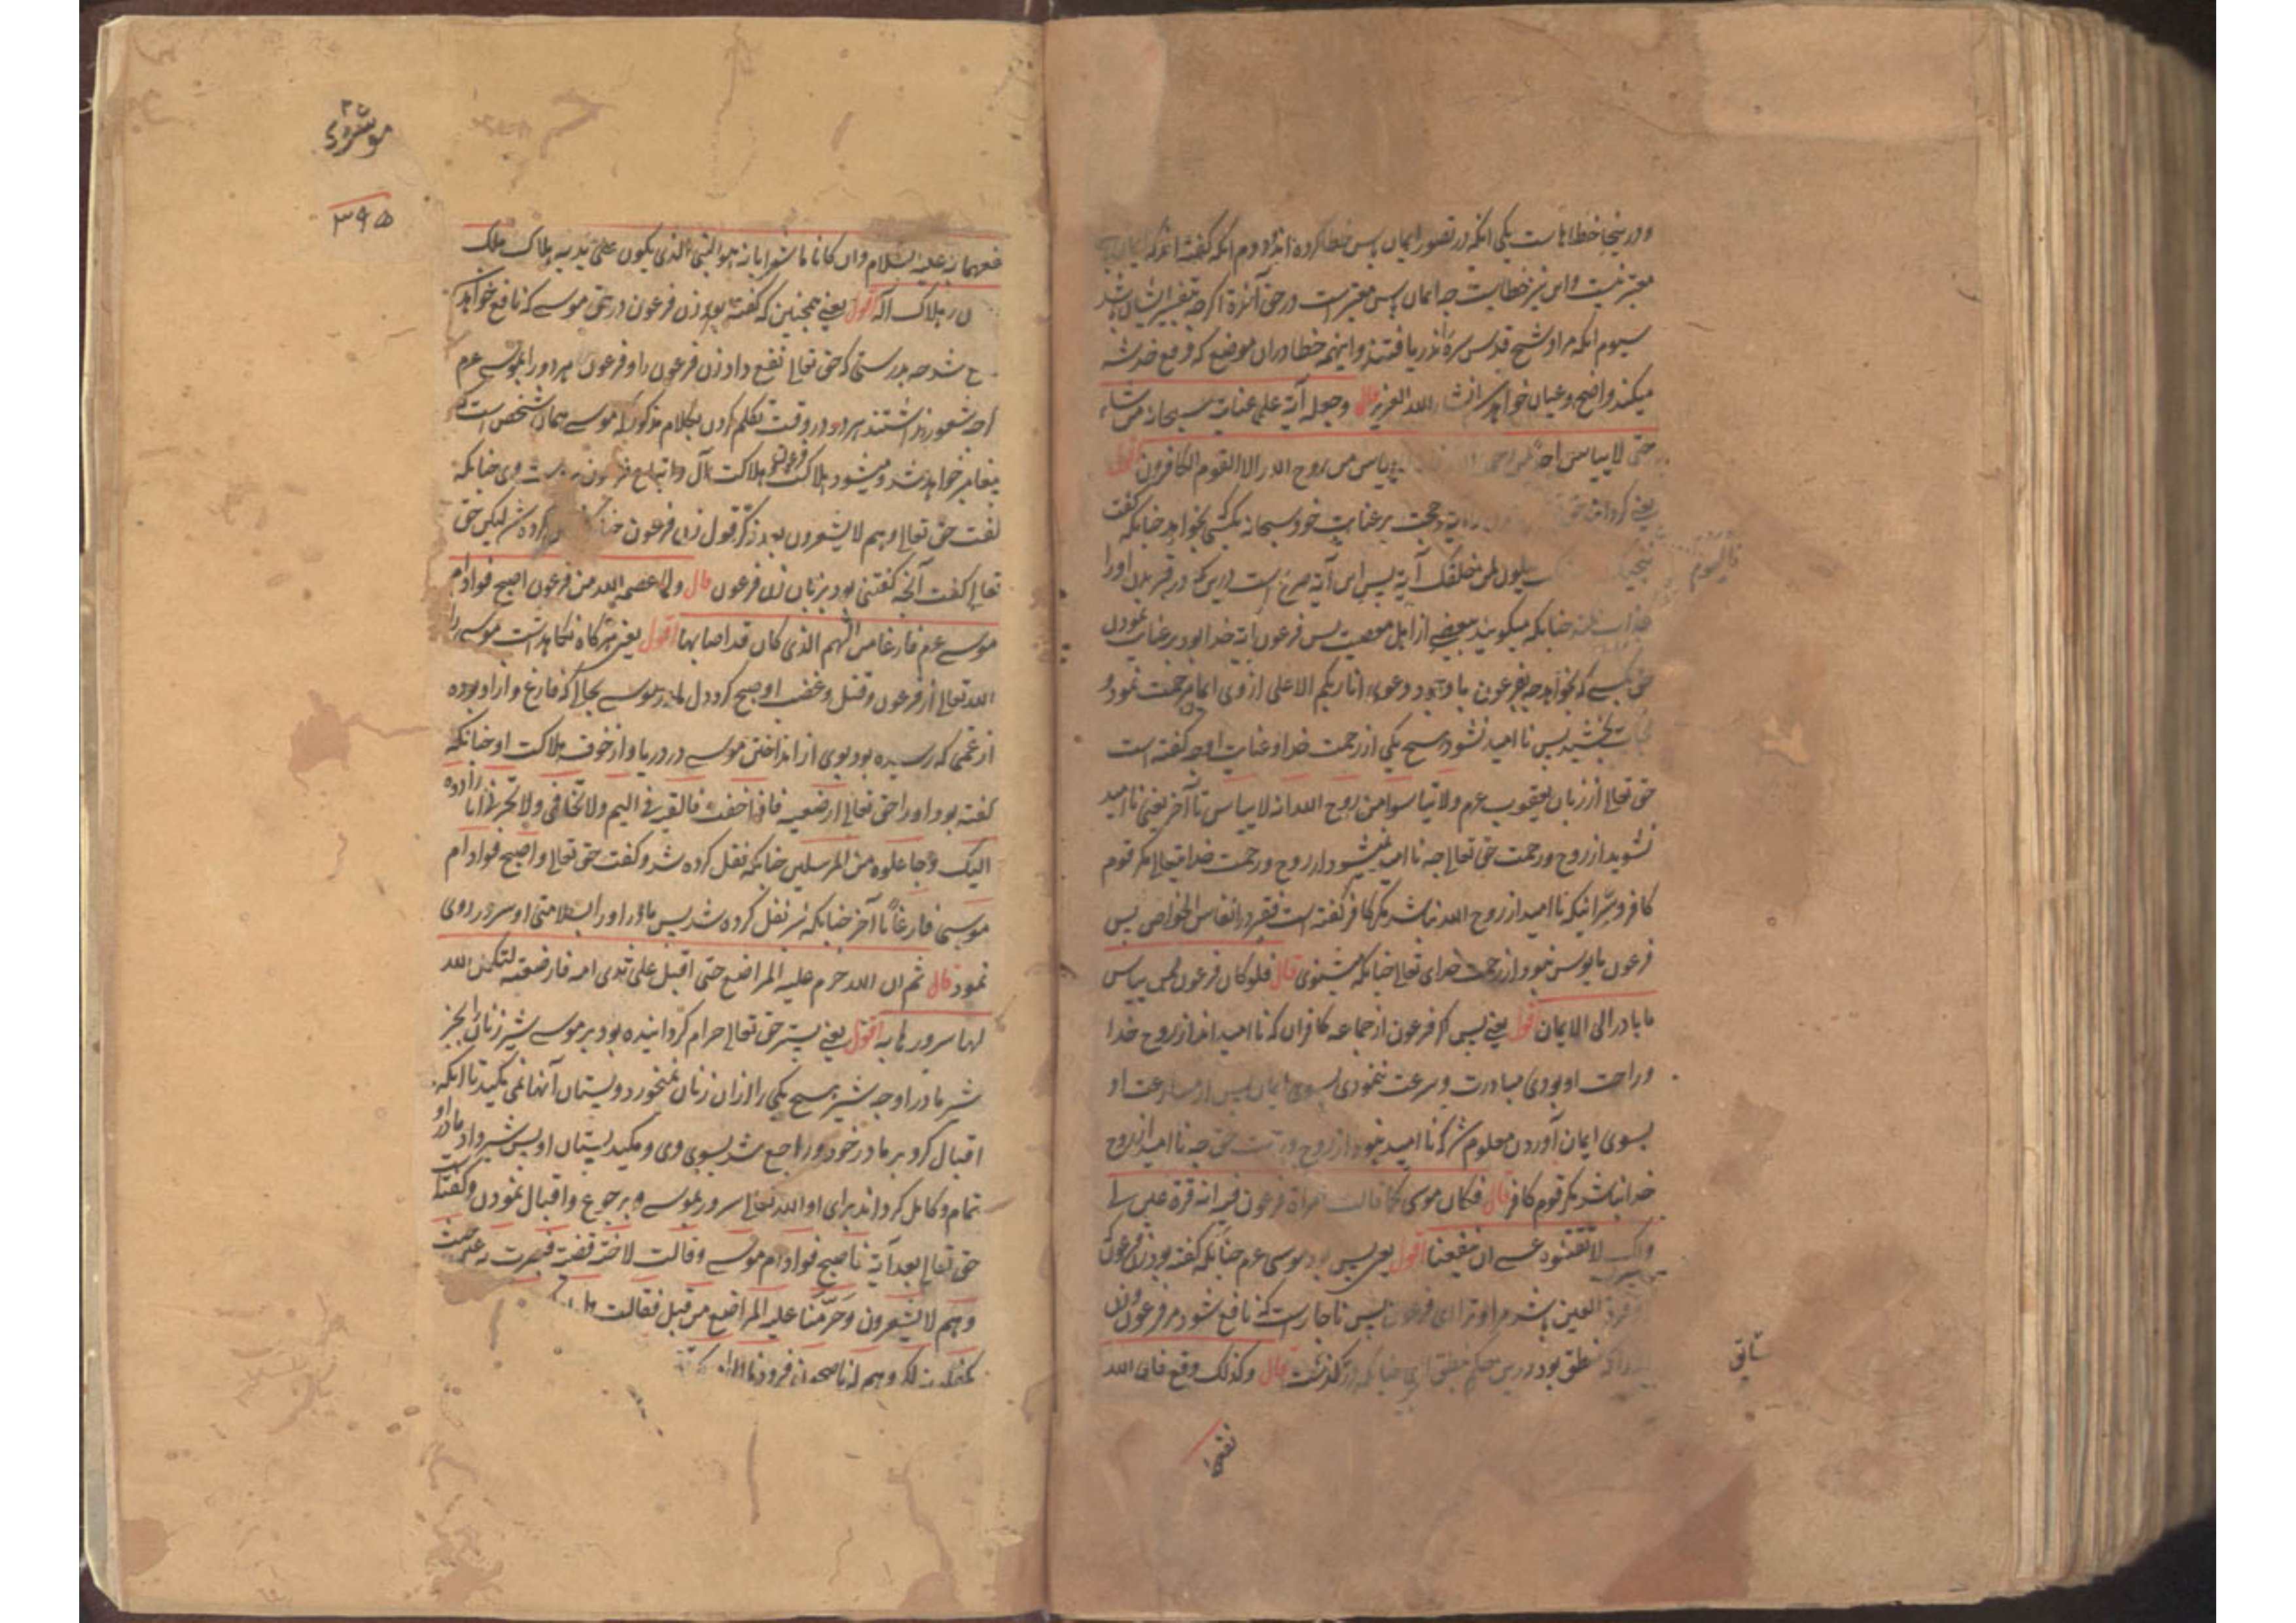 و درینجا خطاهاست یکی انکه در تصور ایمان یاس خطا کرده اند و دوم انکه گفته اند که ایمان یاس
معتبر نیست و این نیز خطاست چه ایمان یاس معتبرست در حق آخرة اکرچه
سیوم انکه مراد شیخ قدس سره را در نیافتند و اینهمه خطا در ان موضع که وقع خدشه
میکند واضح و عیان خواهد شد انشاء الله العزیز قال وجعله آیة علی عنایته سبحانه من شاء
حتی لا ییاس احد من رحمة الله ییاس من روح الله الا القوم الکافرون اقول
یعنی کردانید حق آیة و حجت بر عنایت خود سبحانه بکسی بخواهد چنانکه گفت
فالیوم ننجیک لمن خلفک آیة پس این آیة صریح است درین که در قبر بدن او را
عذاب چنانکه میکویند بعضی از اهل معصیت پس فرعون آیة خدا بود بر عنایت نمودن
حق بکسی که بخواهد چه بفرعون با وجود دعوی انا ربکم الاعلی از وی ایام رحمت نمود و
نجات بخشید پس ناامید نشود هیچ یکی از رحمت خدا و عنایت او چه گفته است
حق تعالی از زبان یعقوب عم ولا تیاسوا من روح الله انه لا ییاس تا آخر یعنی ناامید
نشوید از روح و رحمت حق تعالی چه ناامید نمیشود از روح و رحمت خدا یتعالی مکر قوم
کافر و سر اینکه ناامید از روح الله نباشد مکر کافر گفته است فقیر در انفاس الخواص پس
فرعون مایوس نبود از رحمت خدای تعالی چنانکه میشنوی قال فلو کان فرعون ممن ییاس
ما بادر الی الایمان اقول یعنی پس اگر فرعون از جماعه کافران که ناامید اند از روح خدا
و راحت او بودی مبادرت و سرعت ننمودی بسوی ایمان پس از مسارعت او
بسوی ایمان آوردن معلوم شد که ناامید نبود از روح و رحمت حق چه ناامید از روح
خدا نباشد مکر قوم کافر قال فکان موسی کما قالت امراة فرعون فیه انه قرة عین لی
ولک لا تقتلوه عسی ان ینفعنا اقول یعنی پس بود موسی عم چنانکه گفته بود زن فرعون
قرة العین باشد مرا و ترا ای فرعون پس ناچارست که نافع شود مر فرعون و زن
بود درین حکم چنانکه در گذشت قال وکذلک وقع فان الله
سابق
نفعهما
موسوی
۳۹۵
نفعهما به علیه السلام وان کانا ما شعرا بانه هو النبی الذی یکون علی یدیه هلاک ملک
هلاک آله اقول یعنی همچنین که گفته بود زن فرعون در حق موسی که نافع خواهد
شد چه بدرستی که حق تعالی نفع داد زن فرعون را و فرعون هر دو را بموسی عم
اکرچه شعور نداشتند هر دو در وقت تکلم کردن بکلام مذکور که موسی همان شخص است که
پیغامبر خواهد شد و میشود هلاکت فرعون و هلاکت آل و اتباع فرعون بر دست وی چنانکه
گفت حق تعالی وهم لا یشعرون بعد ذکر قول زن فرعون کرده شد لیکن حق
تعالی گفت آنچه گفتنی بود بر زبان زن فرعون قال ولما عصمه الله من فرعون اصبح فواد ام
موسی عم فارغا من الهم الذی کان قد اصابها اقول یعنی هرگاه نگاهداشت موسی را
الله تعالی از فرعون و قتل و غضب او صبح کرد دل مادر موسی بحالیکه فارغ و آزاد بوده
از غمی که رسیده بود بوی از انداختن موسی در دریا و از خوف هلاکت او چنانکه
گفته بود او را حق تعالی ارضعیه فاذا خفت فالقیه فی الیم ولا تخافی ولا تحزنی انا رادوه
الیک وجاعلوه من المرسلین چنانکه نقل کرده شد و گفت حق تعالی واصبح فواد ام
موسی فارغا تا آخر چنانکه نیز نقل کرده شد پس مادر او را بسلامتی او سرور روی
نمود قال ثم ان الله حرم علیه المراضع حتی اقبل علی ثدی امه فارضعته لتکمل الله
لها سرورها به اقول یعنی پستر حق تعالی حرام کردانیده بود بر موسی شیر زنان را بجز
شیر مادر او چه شیر هیچ یکی را ازان زنان نمیخورد و پستان آنها نمی مکید تا انکه
اقبال کرد بر مادر خود و راجع شد بسوی وی و مکید پستان او پس شیر داد مادر او
تمام و کامل کرداند برای او الله تعالی سرور بموسی و برجوع و اقبال نمودن و گفته است
حق تعالی بعد آیة فاصبح فواد ام موسی وقالت لاخته قصیه فبصرت به عن جنب
وهم لا یشعرون وحرمنا علیه المراضع من قبل فقالت هل
یکفلونه لکم وهم له ناصحون فرددناه الی امه